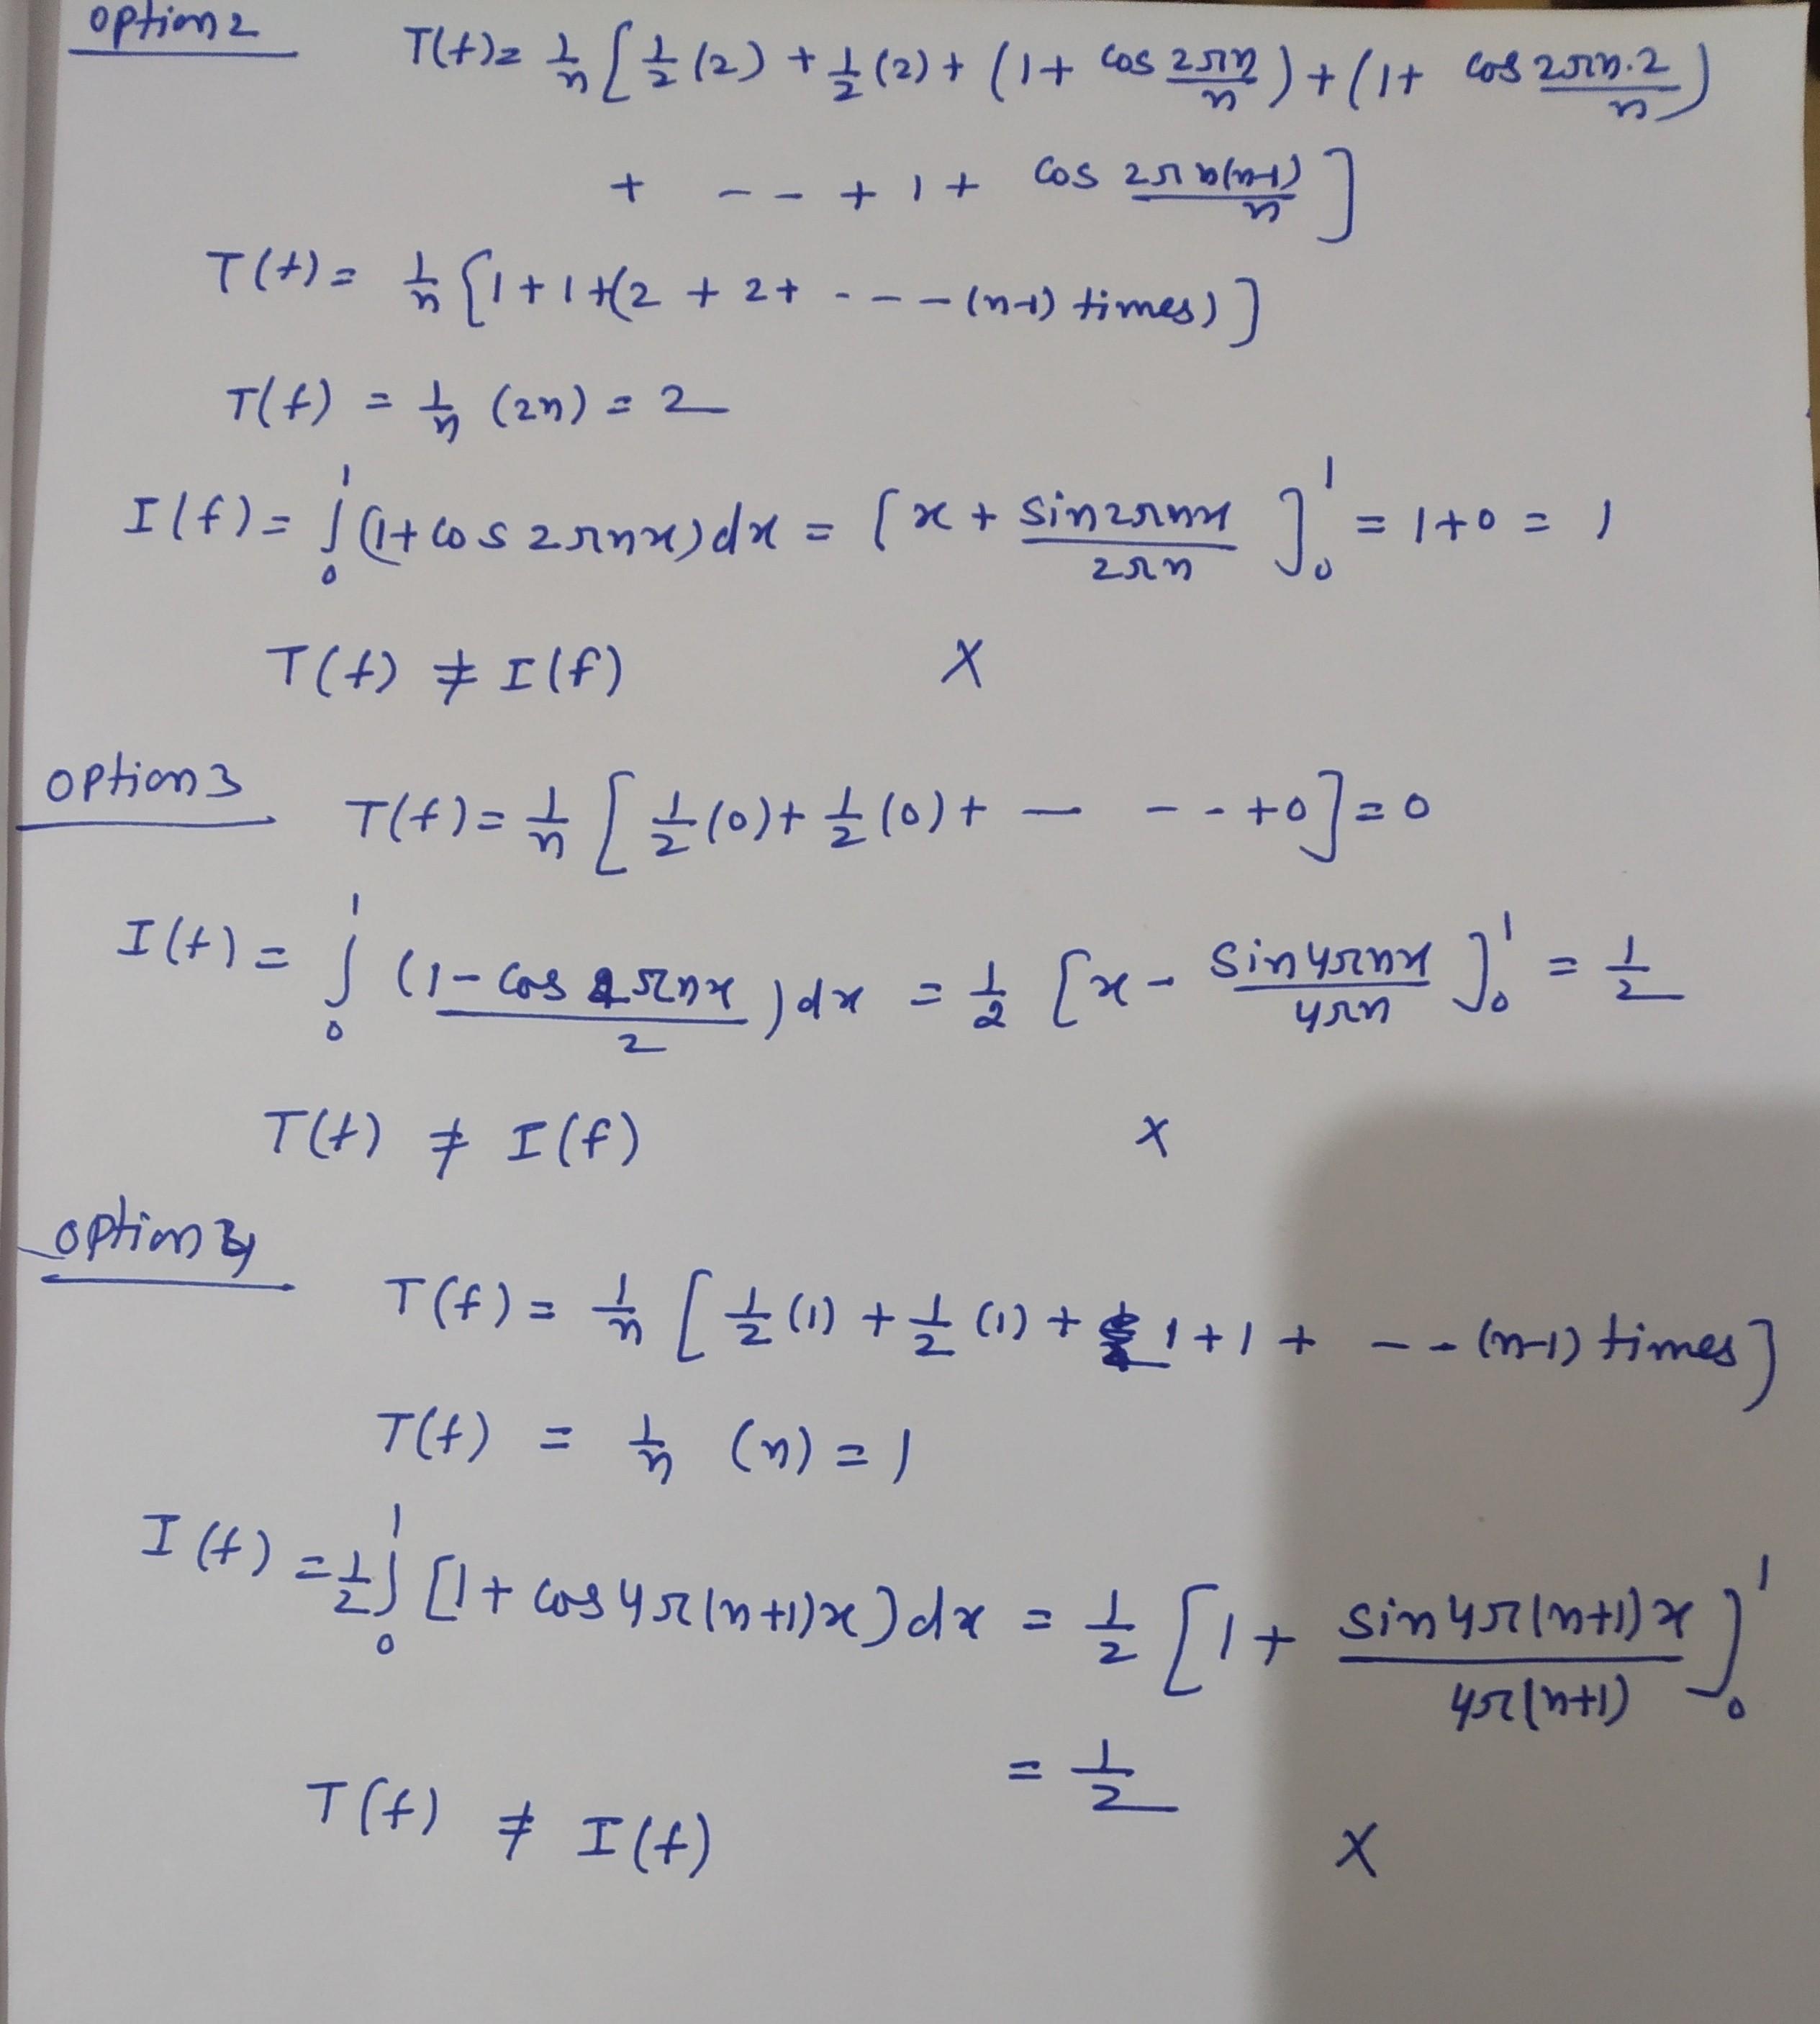 option 2 T(f)= 1/n [ 1/2 (2) + 1/2 (2) + (1+ cos 2πn/n ) + (1+ cos 2πn.2/n )
+ -- + 1 + cos 2πn(n-1)/n ]
T(f) = 1/n [1+1+(2 + 2+ - - - - (n-1) times) ]
T(f) = 1/n (2n) = 2
I(f) = ∫₀¹ (1+cos 2πnx) dx = [ x + sin2πnx / 2πn ]₀¹ = 1+0 = 1
T(f) ≠ I(f) X
option 3 T(f) = 1/n [ 1/2 (0) + 1/2 (0) + - - - - +0 ] = 0
I(f) = ∫₀¹ (1 - cos 4πnx / 2 ) dx = 1/2 [x - sin4πnx / 4πn ]₀¹ = 1/2
T(f) ≠ I(f) X
option 4 T(f) = 1/n [ 1/2 (1) + 1/2 (1) + 1 + 1 + - - (n-1) times]
T(f) = 1/n (n) = 1
I(f) = 1/2 ∫₀¹ [1 + cos 4π(n+1)x ] dx = 1/2 [ 1 + sin 4π(n+1)x / 4π(n+1) ]₀¹
= 1/2
T(f) ≠ I(f) X